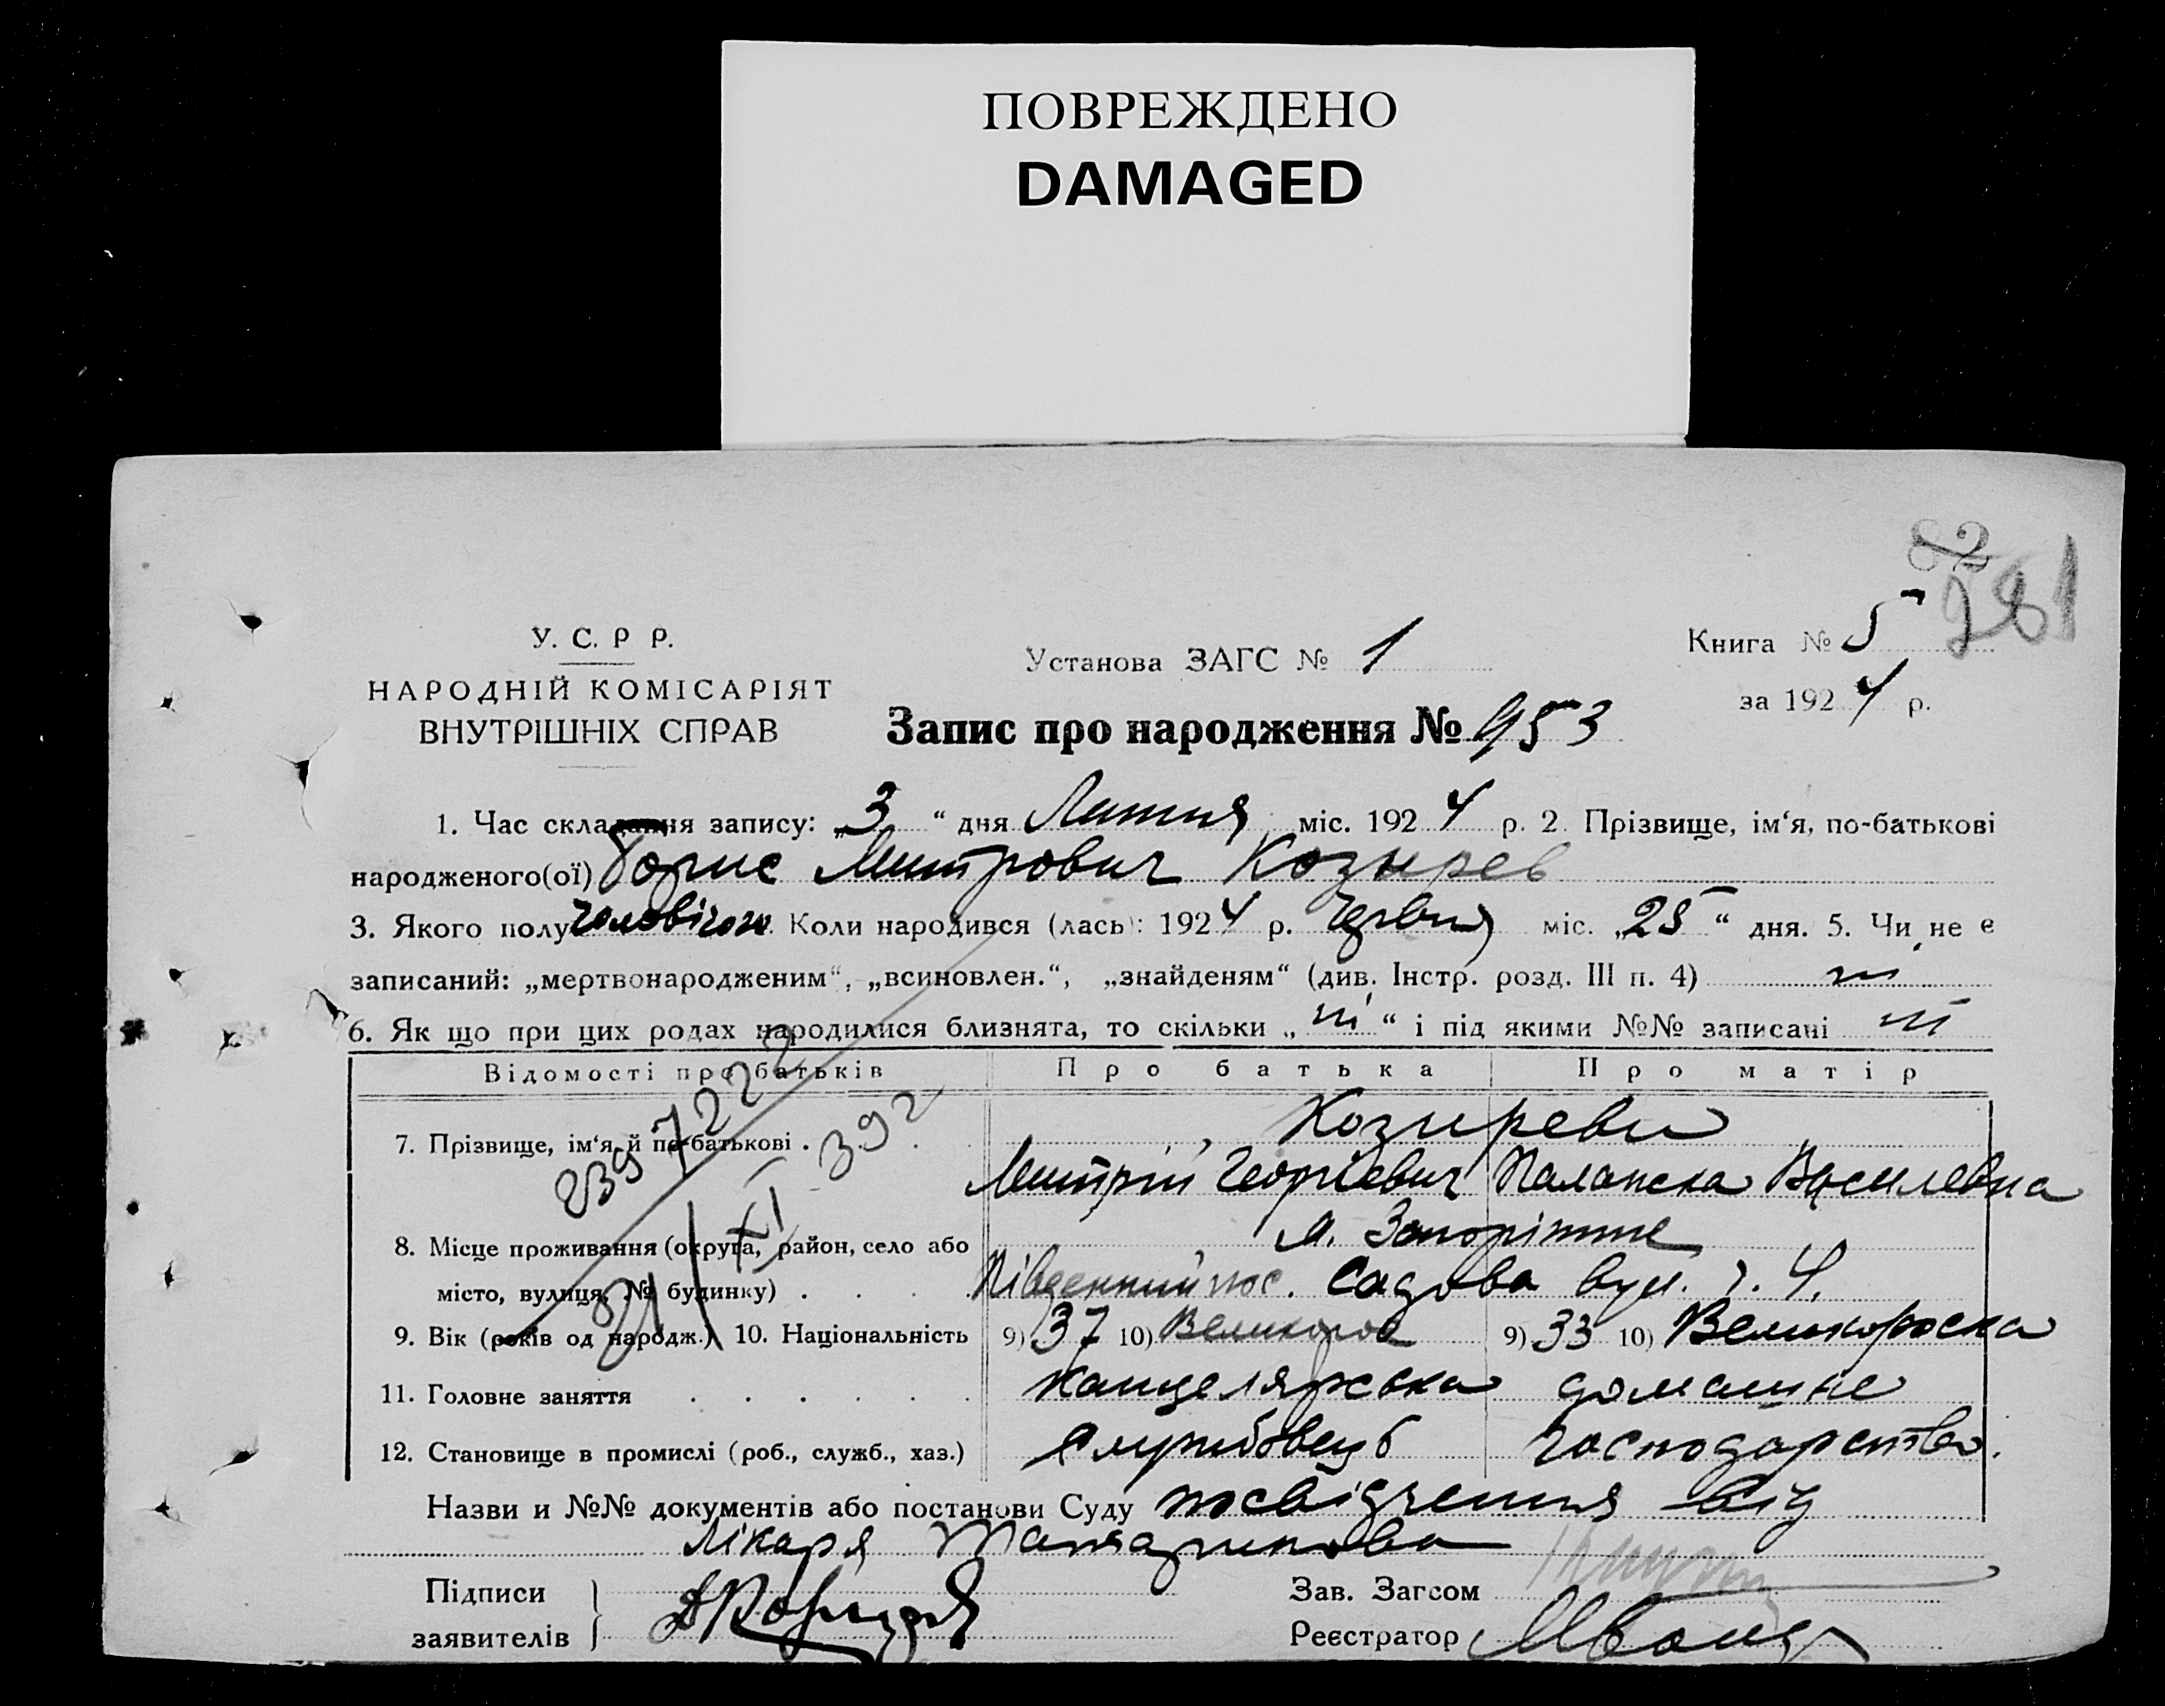 ПОВРЕЖДЕНО
DAMAGED
82
281
У. С. Р Р.
НАРОДНІЙ КОМІСАРІЯТ
ВНУТРІШНІХ СПРАВ
Установа ЗАГС № 1
Книга № 5
за 1924 р.
Запис про народження № 953
1. Час складання запису: „3“ дня Липня міс. 1924 р. 2. Прізвище, ім‘я, по-батькові
народженого(ої) Борис Митрович Козирев
3. Якого полу чоловічого. Коли народився (лась): 1924 р. Червня міс. „25“ дня. 5. Чи не є
записаний: „мертвонародженим“, „всиновлен.“, „знайденям“ (див. Інстр. розд. III п. 4) ні
6. Як що при цих родах народилися близнята, то скільки „ні“ і під якими №№ записані ні
Відомості про батьків Про батька Про матір
7. Прізвище, ім‘я й по-батькові . Козиреви
Митрій Георгіевич Василевна
8. Місце проживання (округа, район, село або м. Запоріжже
місто, вулиця, № будинку) . . . . Південний пос. Садова вул. ч. 4.
9. Вік (років од народж.) 10. Національність 9) 37 10) Великорос 9) 33 10) Великороска
11. Головне заняття . . . . . канцелярська домашнє
12. Становище в промислі (роб., служб., хаз.) службовець господарство.
Назви и №№ документів або постанови Суду посвідчення від
лікаря
Підписи
заявителів
Зав. Загсом
Реєстратор
239722
392